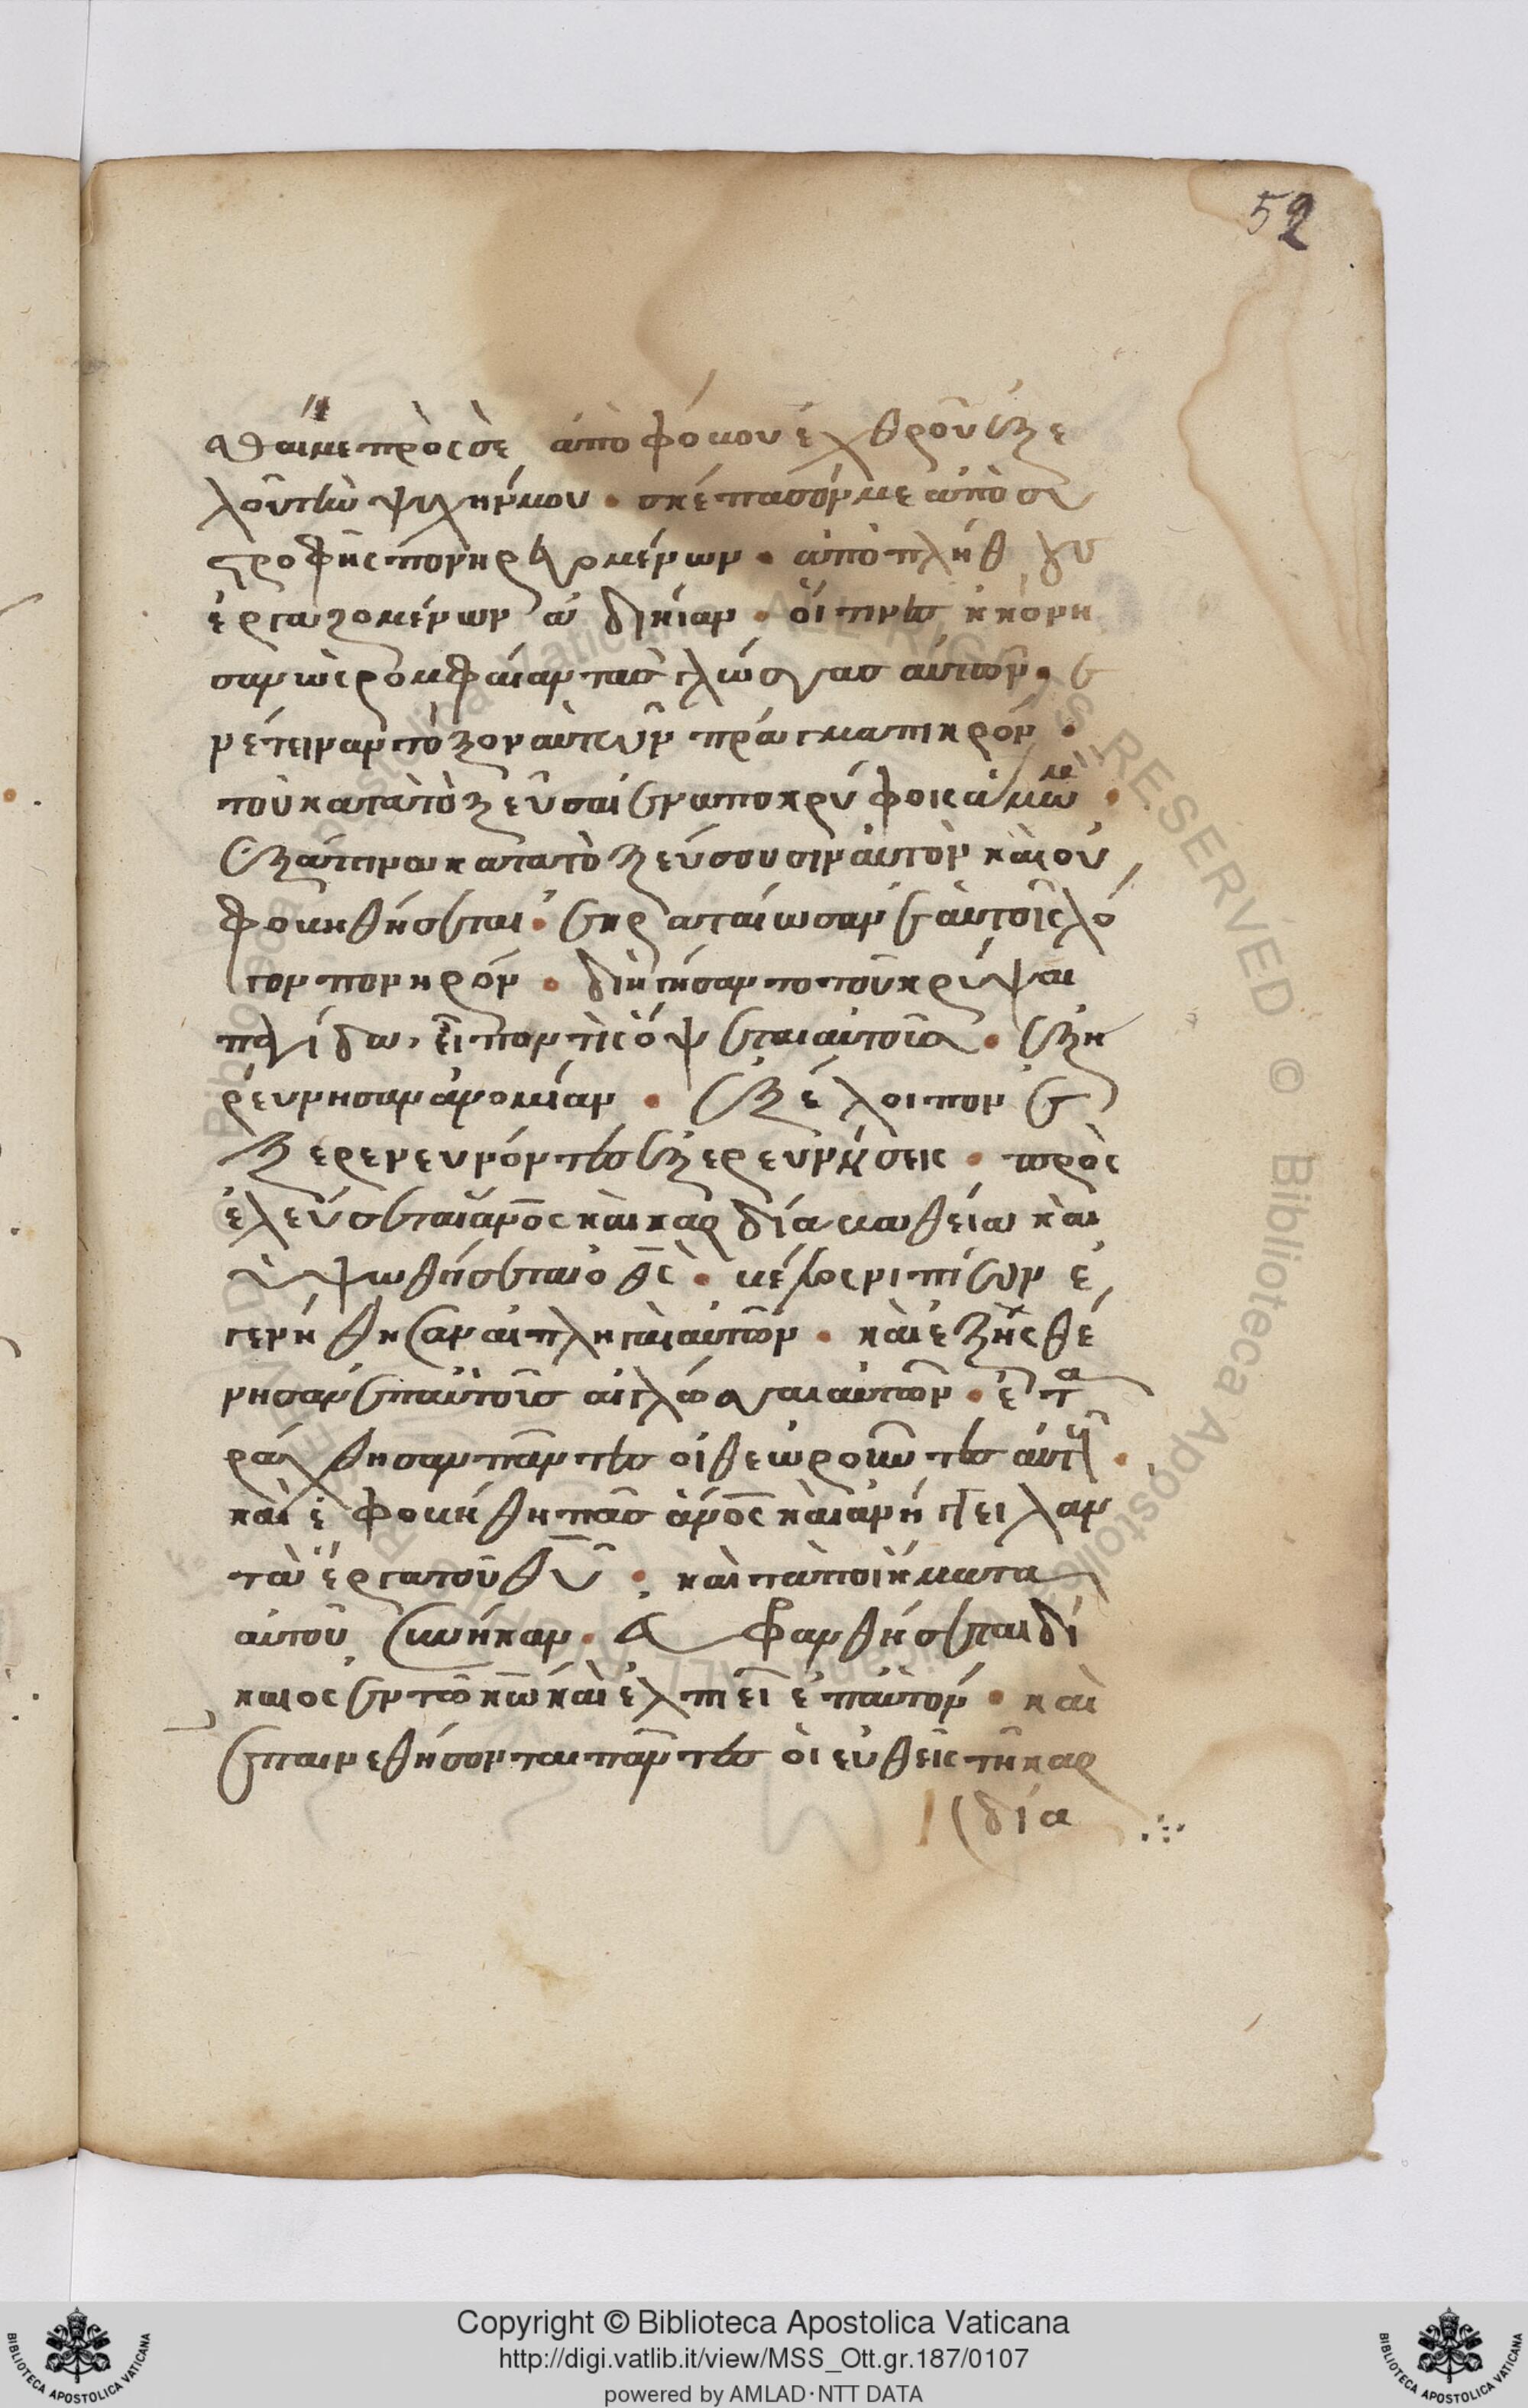 52
σθαί με πρὸς σὲ ἀπὸ φόβου ἐχθροῦ ἐξε
λοῦ τὴν ψυχήν μου · σκέπασόν με ἀπὸ συ
στροφῆς πονηρευομένων · ἀπὸ πλήθους
ἐργαζομένων ἀδικίαν · οἵτινες ἠκόνη
σαν ὡς ρομφαίαν τὰς γλώσσας αὐτῶν · ἐ
νέτειναν τόξον αὐτῶν πρᾶγμα πικρόν ·
τοῦ κατατοξεῦσαι ἐν αποκρύφοις ἄμωμὸ ·
ἐξάπινα κατατοξεύσουσιν αὐτὸν καὶ οὐ
φοβηθήσεται · ἐκραταίωσαν ἑαυτοῖς λό
γον πονηρόν · διηγήσαντο τοῦ κρύψαι
παγίδα, εἶπον τίς ὄψεται αὐτούς · ἐξη
ρεύνησαν ἀνομίαν · ἐξέλοιπον ἐ
ξερευνόντες ἐξερευνήσεις · προς
ἐλεύσεται ἄνος καὶ καρδία βαθεία καὶ
ὑψωθήσεται ὁ θς · βέλος νηπίων ἐ
γενήθησαν αἱ πληγαὶ αὐτῶν · καὶ ἐξησθέ
νησαν ἐπ' αὐτοὺς αἱ γλῶσσαι αὐτῶν · ἐτα
ράχθησαν πάντες οἱ θεωροῦντες αὐτούς ·
καὶ ἐφοβήθη πᾶς ἄνος καὶ ἀνήγγειλαν
τὰ ἔργα τοῦ θυ · καὶ τὰ ποιήματα
αὐτοῦ συνήκαν · εὐφρανθήσεται δί
καιος ἐν τῶ κω καὶ ἐλπιεῖ ἐπ' αὐτόν · καὶ
ἐπαινεθήσονται πάντες οἱ εὐθεῖς τῆ καρ
δία
Copyright © Biblioteca Apostolica Vaticana
http://digi.vatlib.it/view/MSS_Ott.gr.187/0107
powered by AMLAD·NTT DATA
BIBLIOTECA APOSTOLICA VATICANA
BIBLIOTECA APOSTOLICA VATICANA